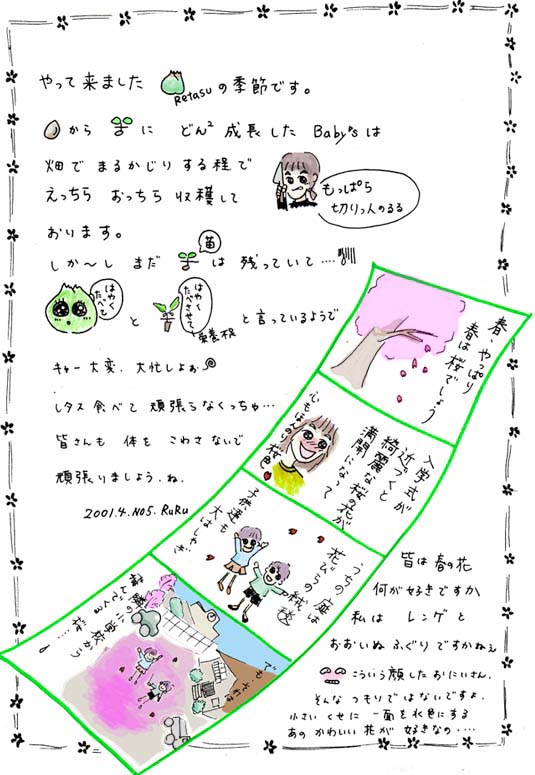 やって来ました Retasuの季節です。
から に どん² 成長した Baby'sは
畑で まるかじり する程で
えっちら おっちら 収穫して
おります。
もっぱら
切りっ人のるる
苗
しか〜し まだ は 残っていて....
はやく
たべて
と
はや〜く
たべさせて
栄養を
と言っているようで
キャー大変、大忙しよぉ
レタス食べて 頑張らなくっちゃ...
皆さんも 体を こわさないで
頑張りましょう、ね。
2001.4.NO5. RuRu
春、やっぱり
春は桜でしょう
入学式が
近づくと
綺麗な桜の花が
満開になって
でもほんのり桜色
うちの庭は
花びらの絨毯
子供達も
大はしゃぎ
皆は春の花
何が好きですか
私は レンゲと
おおいぬ ふぐり ですかねぇ
こういう顔したおにいさん、
そんな つもりで はないですよ、
小さい くせに 一面を水色にする
あの かわいい 花が 好きなの....